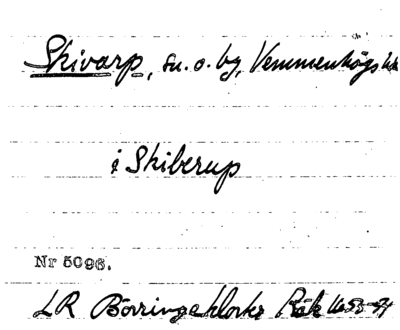 Skivarp, sn. o. by, Vemmenhögs hd
i Skiberup
Nr 5096.
LR Börringeklosters Räk 1653-54